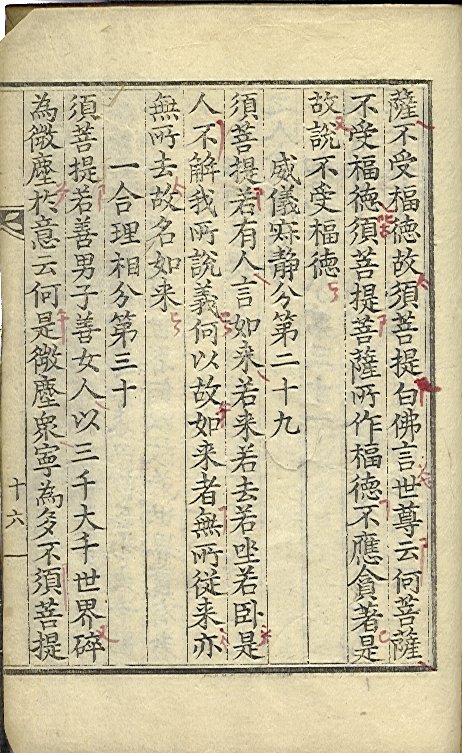 薩不受福德故須菩提白佛言世尊云何菩薩
不受福德須菩提菩薩所作福德不應貪著是
故說不受福德
威儀寂静分第二十九
須菩提若有人言如来若来若去若坐若卧是
人不解我所說義何以故如来者無所従来亦
無所去故名如来
一合理相分第三十
須菩提若善男子善女人以三千大千世界碎
為微塵於意云何是微塵衆寧為多不須菩提
十六